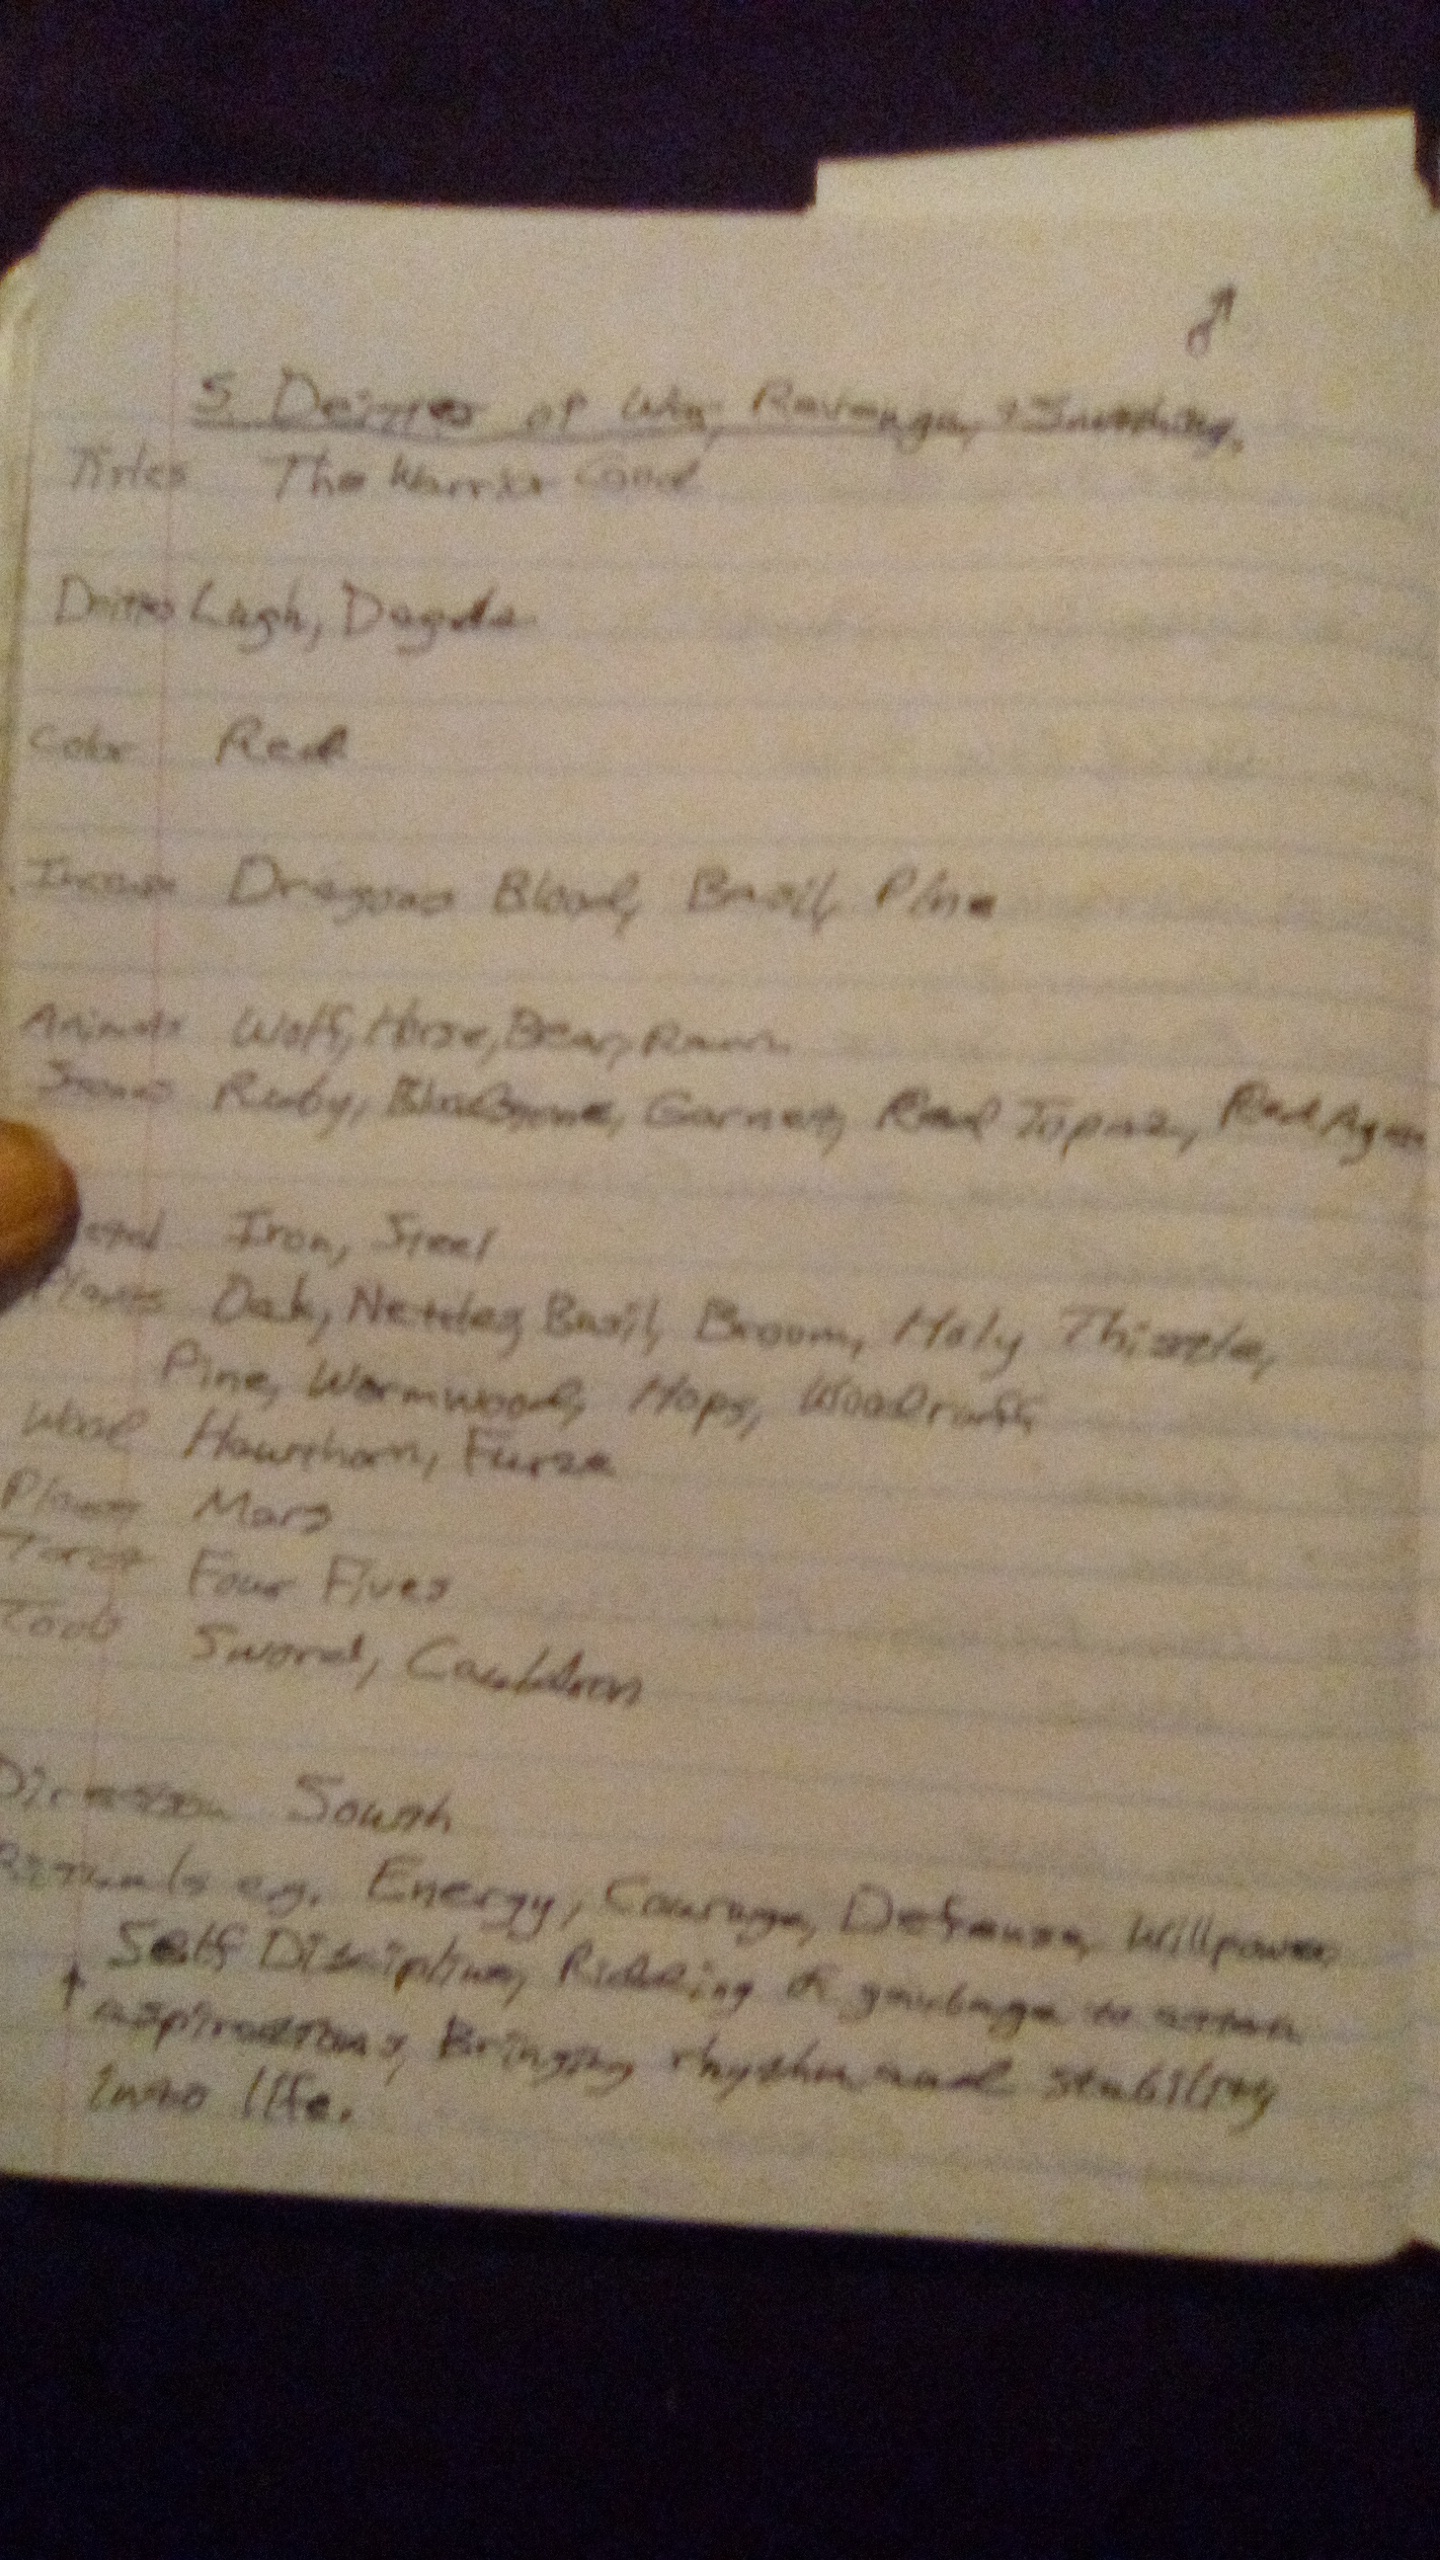 ♂
5 Deities of War, Revenge, + Smithing,
Titles The Warrior God
Deities Lugh, Dagda
Color Red
Incense Dragons Blood, Basil, Pine
Animals Wolf, Horse, Bear, Raven
Stones Ruby, Bloodstone, Garnet, Red Topaz, Red Agate
Metal Iron, Steel
Plants Oak, Nettles, Basil, Broom, Holy Thistle,
Pine, Wormwood, Hops, Woodruff,
Wood Hawthorn, Furze
Planet Mars
Tarot Four Fives
Tools Sword, Cauldron
Direction South
Rituals e.g. Energy, Courage, Defense, Willpower,
Self Discipline, Ridding of garbage to attain
↑ aspirations, Bringing rhythm and stability
into life.